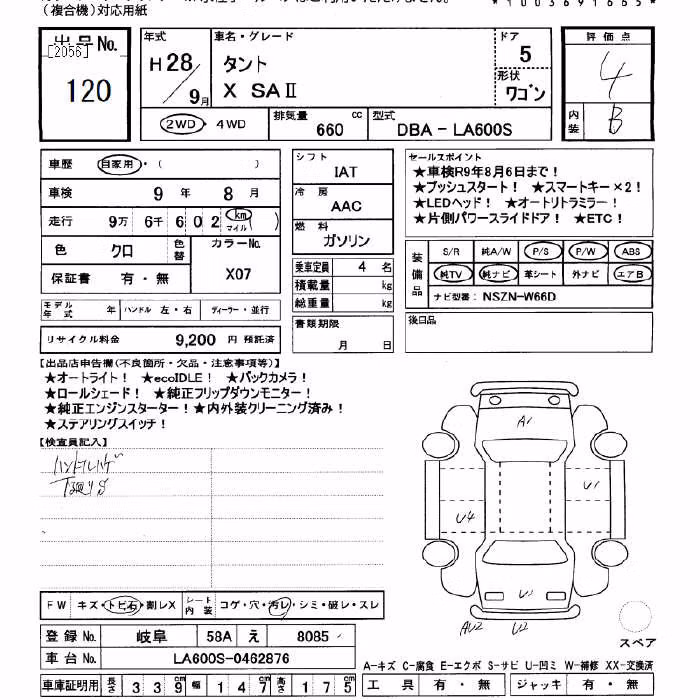 （複合機）対応用紙
出品No.
[2056]
120
年式
H28／9月
車名・グレード
タント
X SAⅡ
ドア
5
形状
ワゴン
評価点
4
内装
B
2WD・4WD
排気量 660 cc
型式 DBA－LA600S
車歴 自家用・（ ）
車検 9年 8月
走行 9万 6千 602 km マイル ( )
色 クロ 色替 カラーNo. X07
保証書 有・無
シフト
IAT
冷房
AAC
燃料
ガソリン
乗車定員 4 名
積載量 kg
総重量 kg
セールスポイント
★車検R9年8月6日まで！
★プッシュスタート！ ★スマートキー×2！
★LEDヘッド！ ★オートリトラミラー！
★片側パワースライドドア！ ★ETC！
装備品
S/R 純A/W P/S P/W ABS
純TV 純ナビ 革シート 外ナビ エアB
ナビ型番： NSZN-W66D
モデル年式 年 ハンドル 左・右 ディーラー・並行
書類期限
月 日
後日品
リサイクル料金 9,200 円 預託済
【出品店申告欄(不良箇所・欠品・注意事項等)】
★オートライト！ ★ecoIDLE！ ★バックカメラ！
★ロールシェード！ ★純正フリップダウンモニター！
★純正エンジンスターター！★内外装クリーニング済み！
★ステアリングスイッチ！
【検査員記入】
ハンドルハゲ
下廻りS
A1
U1
U4
AU2 U2
FW キズ・トビ石・割レX シート内装 コゲ・穴・汚レ・シミ・破レ・スレ
登録No. 岐阜 58A え 8085
車台No. LA600S-0462876
スペア
A-キズ C-腐食 E-エクボ S-サビ U-凹ミ W-補修 XX-交換済
車庫証明用 長さ 339cm 幅 147cm 高さ 175cm
工具 有・無 ジャッキ 有・無